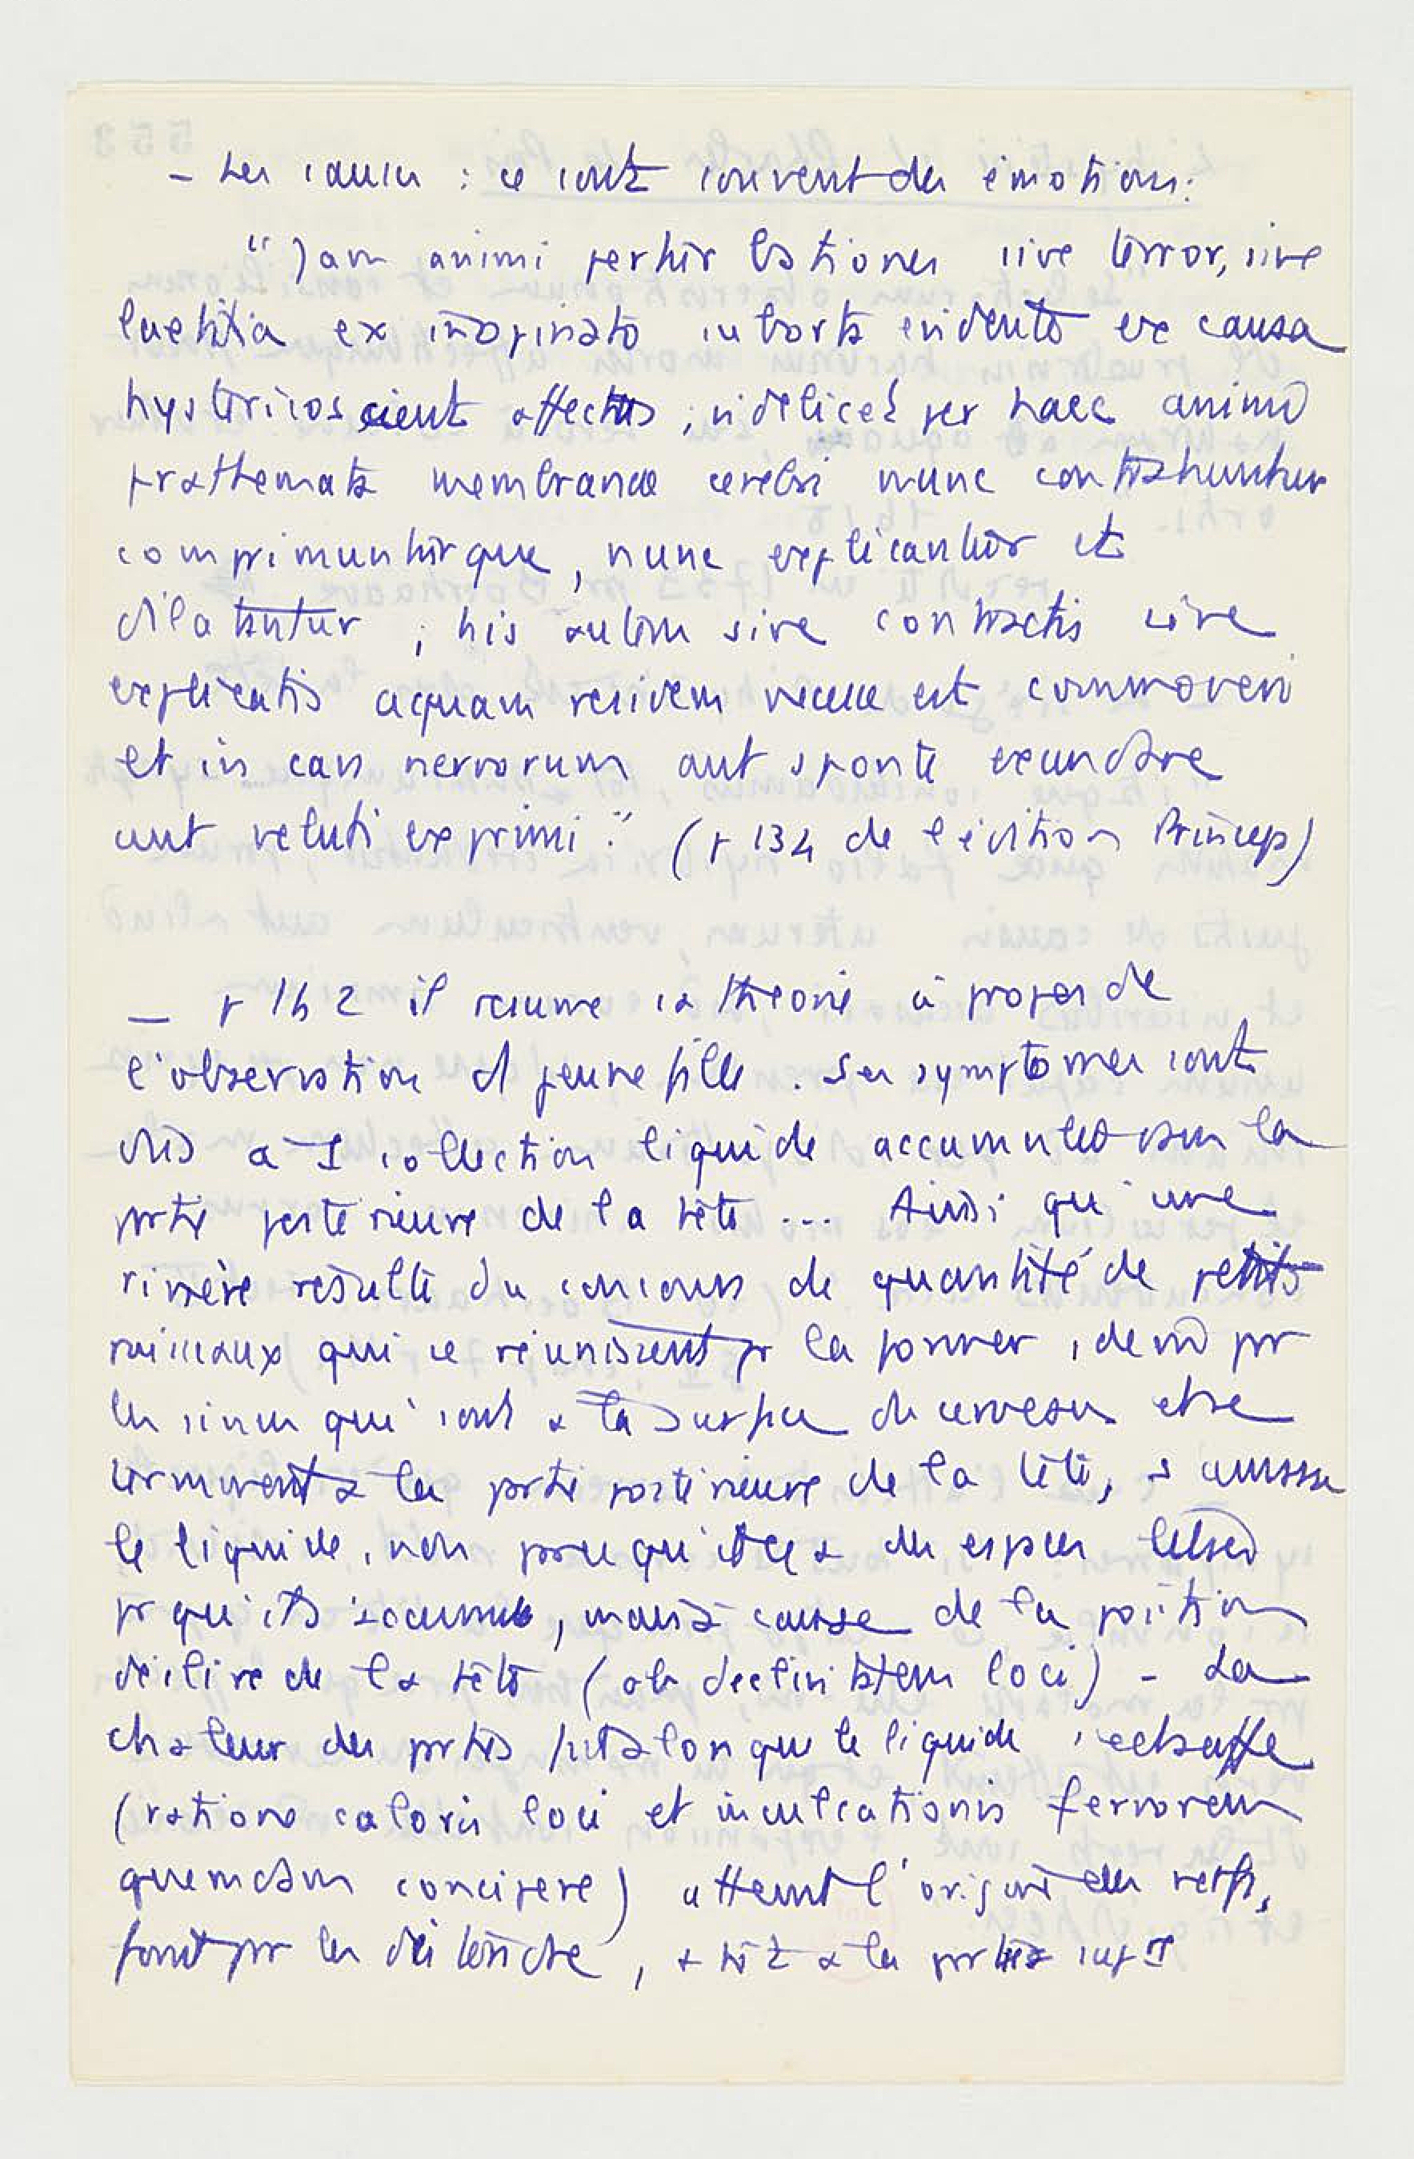 – Les causes : ce sont souvent des émotions :
"Jam animi perturbationes sive terror, sive
laetitia ex inopinato suborta evidente ex causa
hystericos cient affectus ; videlicet per haec animi
pathemata membranae cerebri nunc contrahuntur
comprimunturque, nunc explicantur et
dilatantur ; his autem sive contractis sive
explicatis aquam residem necesse est commoveri
et in cavis nervorum aut sponte exundare
aut veluti exprimi." (p 134 de l'édition Princeps)
– p 142 il résume sa théorie à propos de
l'observation d'1 jeune fille. Ses symptomes sont
dus à 1 collection liquide accumulée dans la
partie postérieure de la tête ... Ainsi qu'une
rivière résulte du concours de quantité de petits
ruisseaux qui se réunissent pr la former, de m̂ pr
les sinus qui sont à la surface du cerveau et se
terminent à la partie postérieure de la tête, s'amasse
le liquide, non parce qu'il y a des espaces
pr qu'il s'accumule, mais à cause de la position
déclive de la tête (ob declivitatem loci) – La
chaleur des parties fait alors que le liquide s'échauffe
(ratione caloris loci et inculcationis fervorem
quemdam concipere) atteint l'origine des